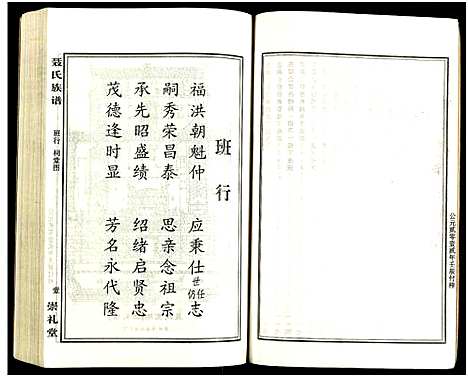 公元贰零壹贰年壬辰付梓
班行
福洪朝魁仲 应乘仕志
世任
仿
嗣秀荣昌泰 思亲念祖宗
承先昭盛绩 绍绪启贤忠
茂德逢时显 芳名永代隆
聂氏族谱
班行 祠堂图
壹
崇礼堂